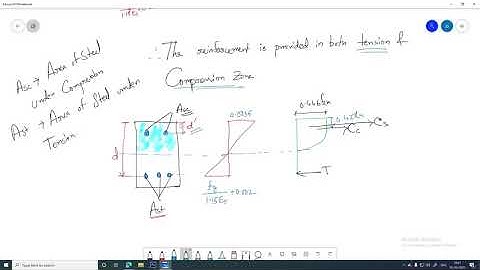 1.15Es
∴ The reinforcement is provided in both tension &
Compression Zone
Asc → Area of Steel
under Compression
Ast → Area of Steel under
Tension
Asc
d'
d
Ast
0.0035
fy
1.15Es + 0.002
0.446fck
0.42xu
Cc
Cs
T
Type here to search
ENG